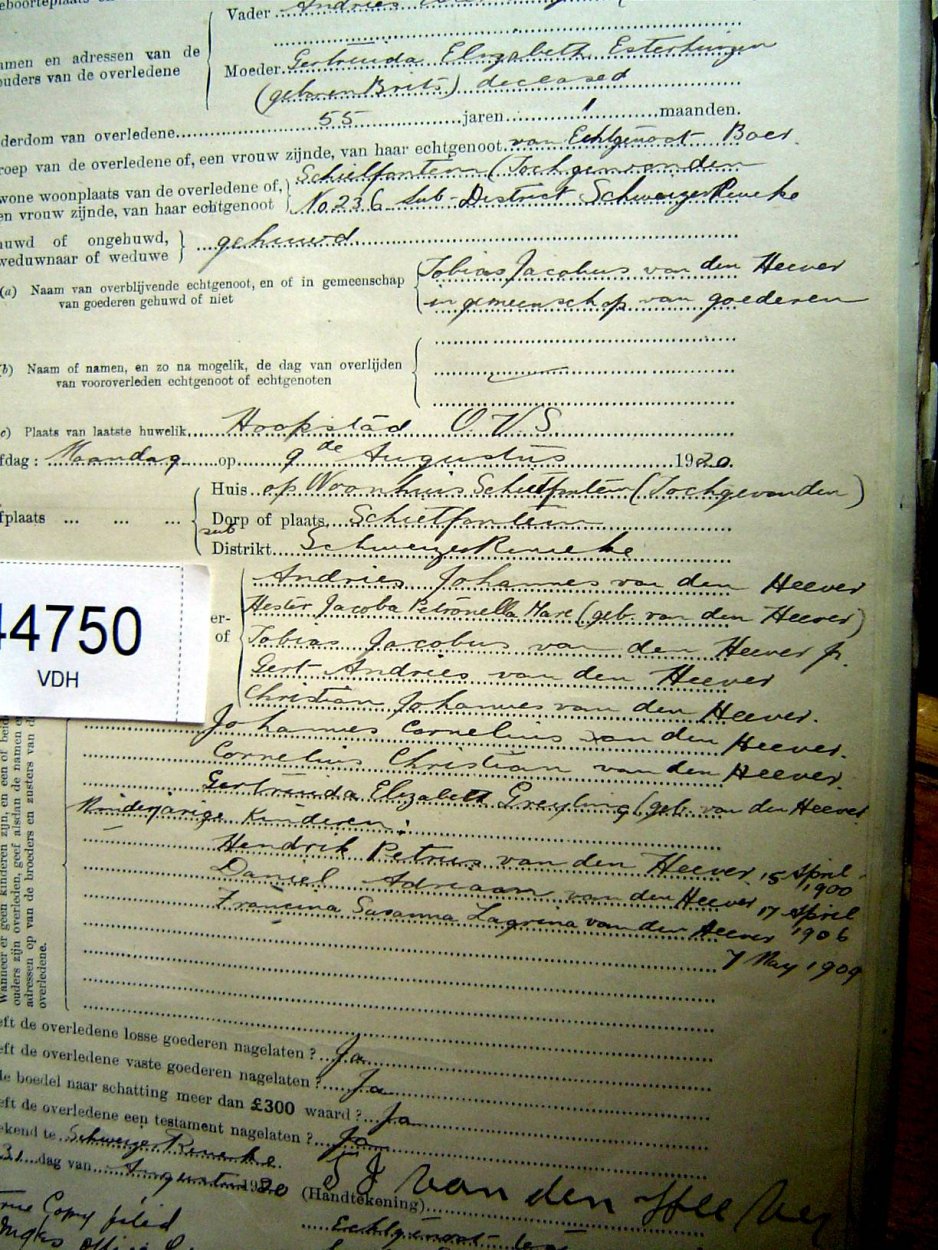 Vader Andries
amen en adressen van de
ouders van de overledene
Moeder Gertruida Elizabeth Esterhuizen
(geboren Brits) deceased
derdom van overledene 55 jaren 1 maanden.
roep van de overledene of, een vrouw zijnde, van haar echtgenoot van Echtgenoot Boer
wone woonplaats van de overledene of, Schietfontein (Tochgevonden
en vrouw zijnde, van haar echtgenoot No 236 Sub-District Schweizer Reneke
huwd of ongehuwd,
weduwnaar of weduwe gehuwd
(a) Naam van overblijvende echtgenoot, en of in gemeenschap Tobias Jacobus van den Heever
van goederen gehuwd of niet in gemeenschap van goederen
(b) Naam of namen, en zo na mogelik, de dag van overlijden
van vooroverleden echtgenoot of echtgenoten
c) Plaats van laatste huwelik Hoopstad O.V.S.
fdag: Maandag op 9de Augustus 1920.
Huis op Woonhuis Schietfontein (Tochgevonden)
fplaats ... ... ... Dorp of plaats Schietfontein
sub
Distrikt Schweizer Reneke
Andries Johannes van den Heever
Hester Jacoba Petronella Mare (geb. van den Heever)
er-
of
Tobias Jacobus van den Heever jr.
Gert Andries van den Heever
Christian Johannes van den Heever.
44750
VDH
Johannes Cornelius van den Heever.
Cornelius Christian van den Heever.
Gertruida Elizabeth Greyling (geb. van den Heever
Minderjarige Kinderen:
Hendrik Petrus van den Heever 15 April
1900
Daniel Adriaan van den Heever 17 April
1906
Francina Susanna Lagrina van den Heever
7 May 1909
Wanneer er geen kinderen zijn, en een of beide
ouders zijn overleden, geef alsdan de namen e
adressen op van de broeders en zusters van d
overledene.
eft de overledene losse goederen nagelaten? Ja
eft de overledene vaste goederen nagelaten? Ja
de boedel naar schatting meer dan £300 waard? Ja
eft de overledene een testament nagelaten? Ja
ekend te Schweizer Reneke
31 dag van Augustus 1920
(Handtekening) T J van den Heever
True Copy filed
Echtgenoot